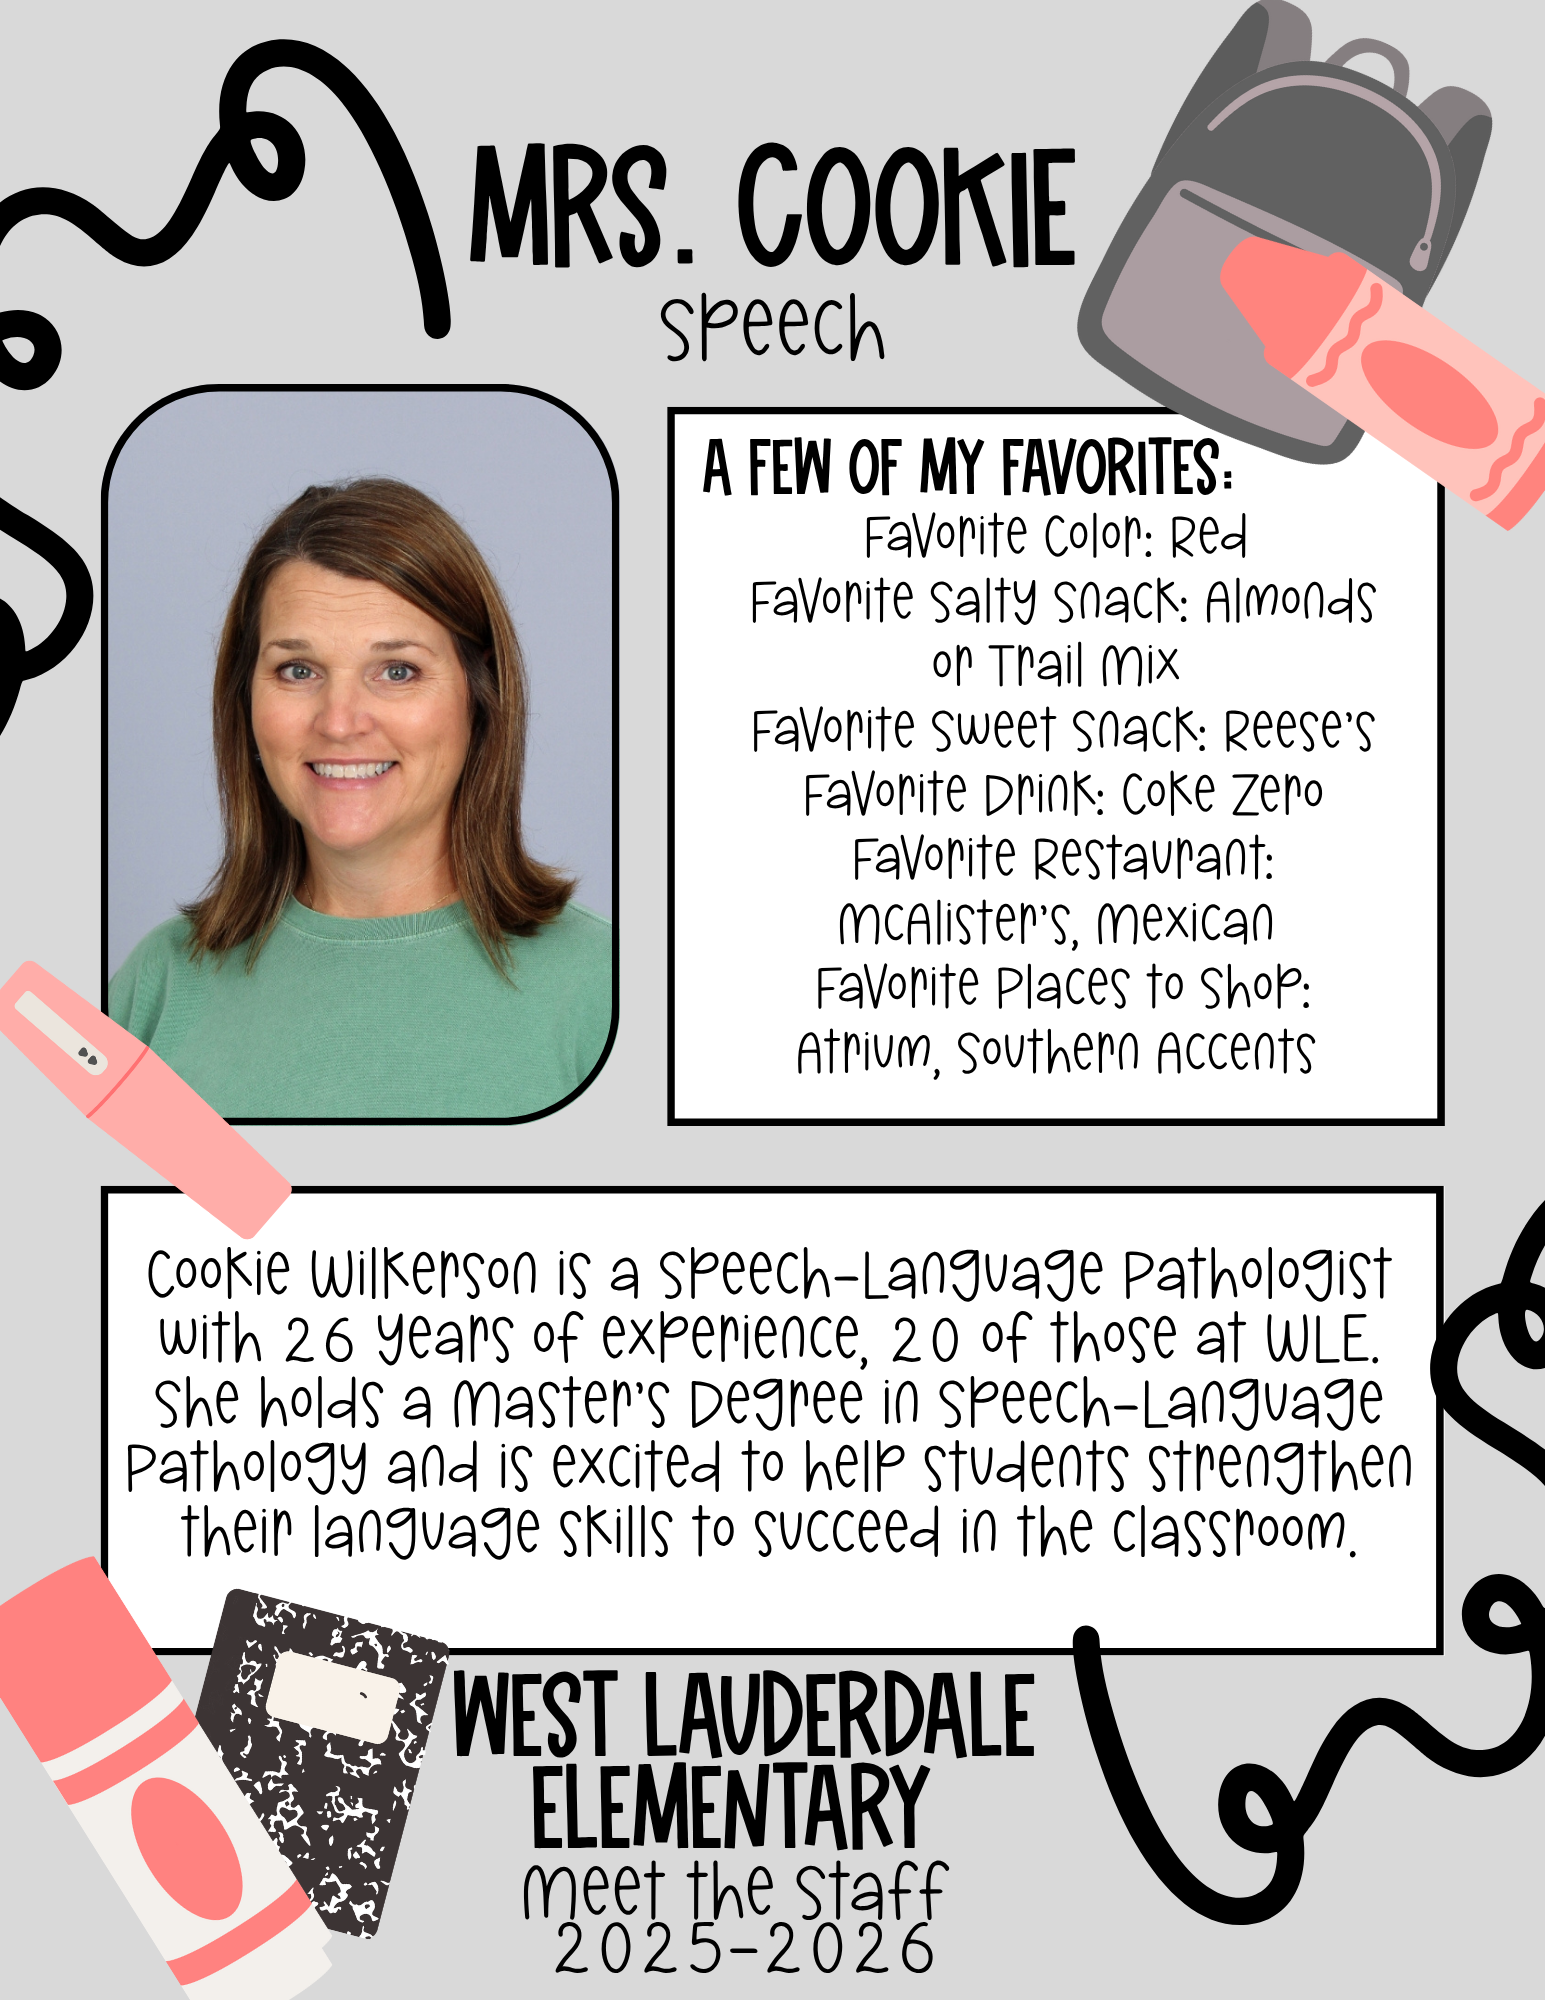 MRS. COOKIE
Speech
A FEW OF MY FAVORITES:
Favorite Color: Red
Favorite Salty Snack: Almonds
or Trail Mix
Favorite Sweet Snack: Reese's
Favorite Drink: Coke Zero
Favorite Restaurant:
McAlister's, Mexican
Favorite Places to Shop:
Atrium, Southern Accents
Cookie Wilkerson is a Speech-Language Pathologist
with 26 years of experience, 20 of those at WLE.
She holds a Master's Degree in Speech-Language
Pathology and is excited to help students strengthen
their language skills to succeed in the classroom.
WEST LAUDERDALE
ELEMENTARY
Meet the Staff
2025-2026